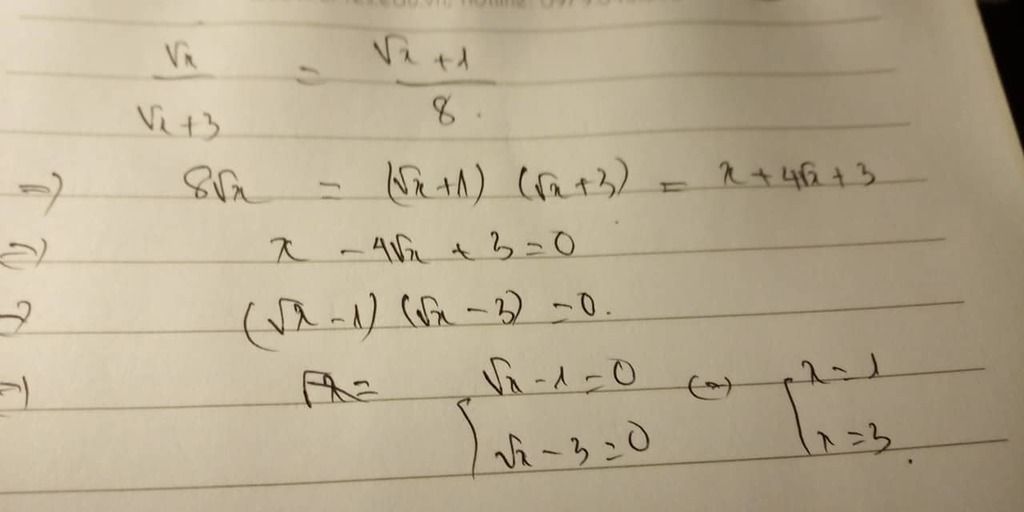 √x / (√x + 3) = (√x + 1) / 8.
=> 8√x = (√x + 1) (√x + 3) = x + 4√x + 3
=> x - 4√x + 3 = 0
=> (√x - 1) (√x - 3) = 0.
=> [ √x - 1 = 0 <=> [ x = 1
√x - 3 = 0 x = 3.